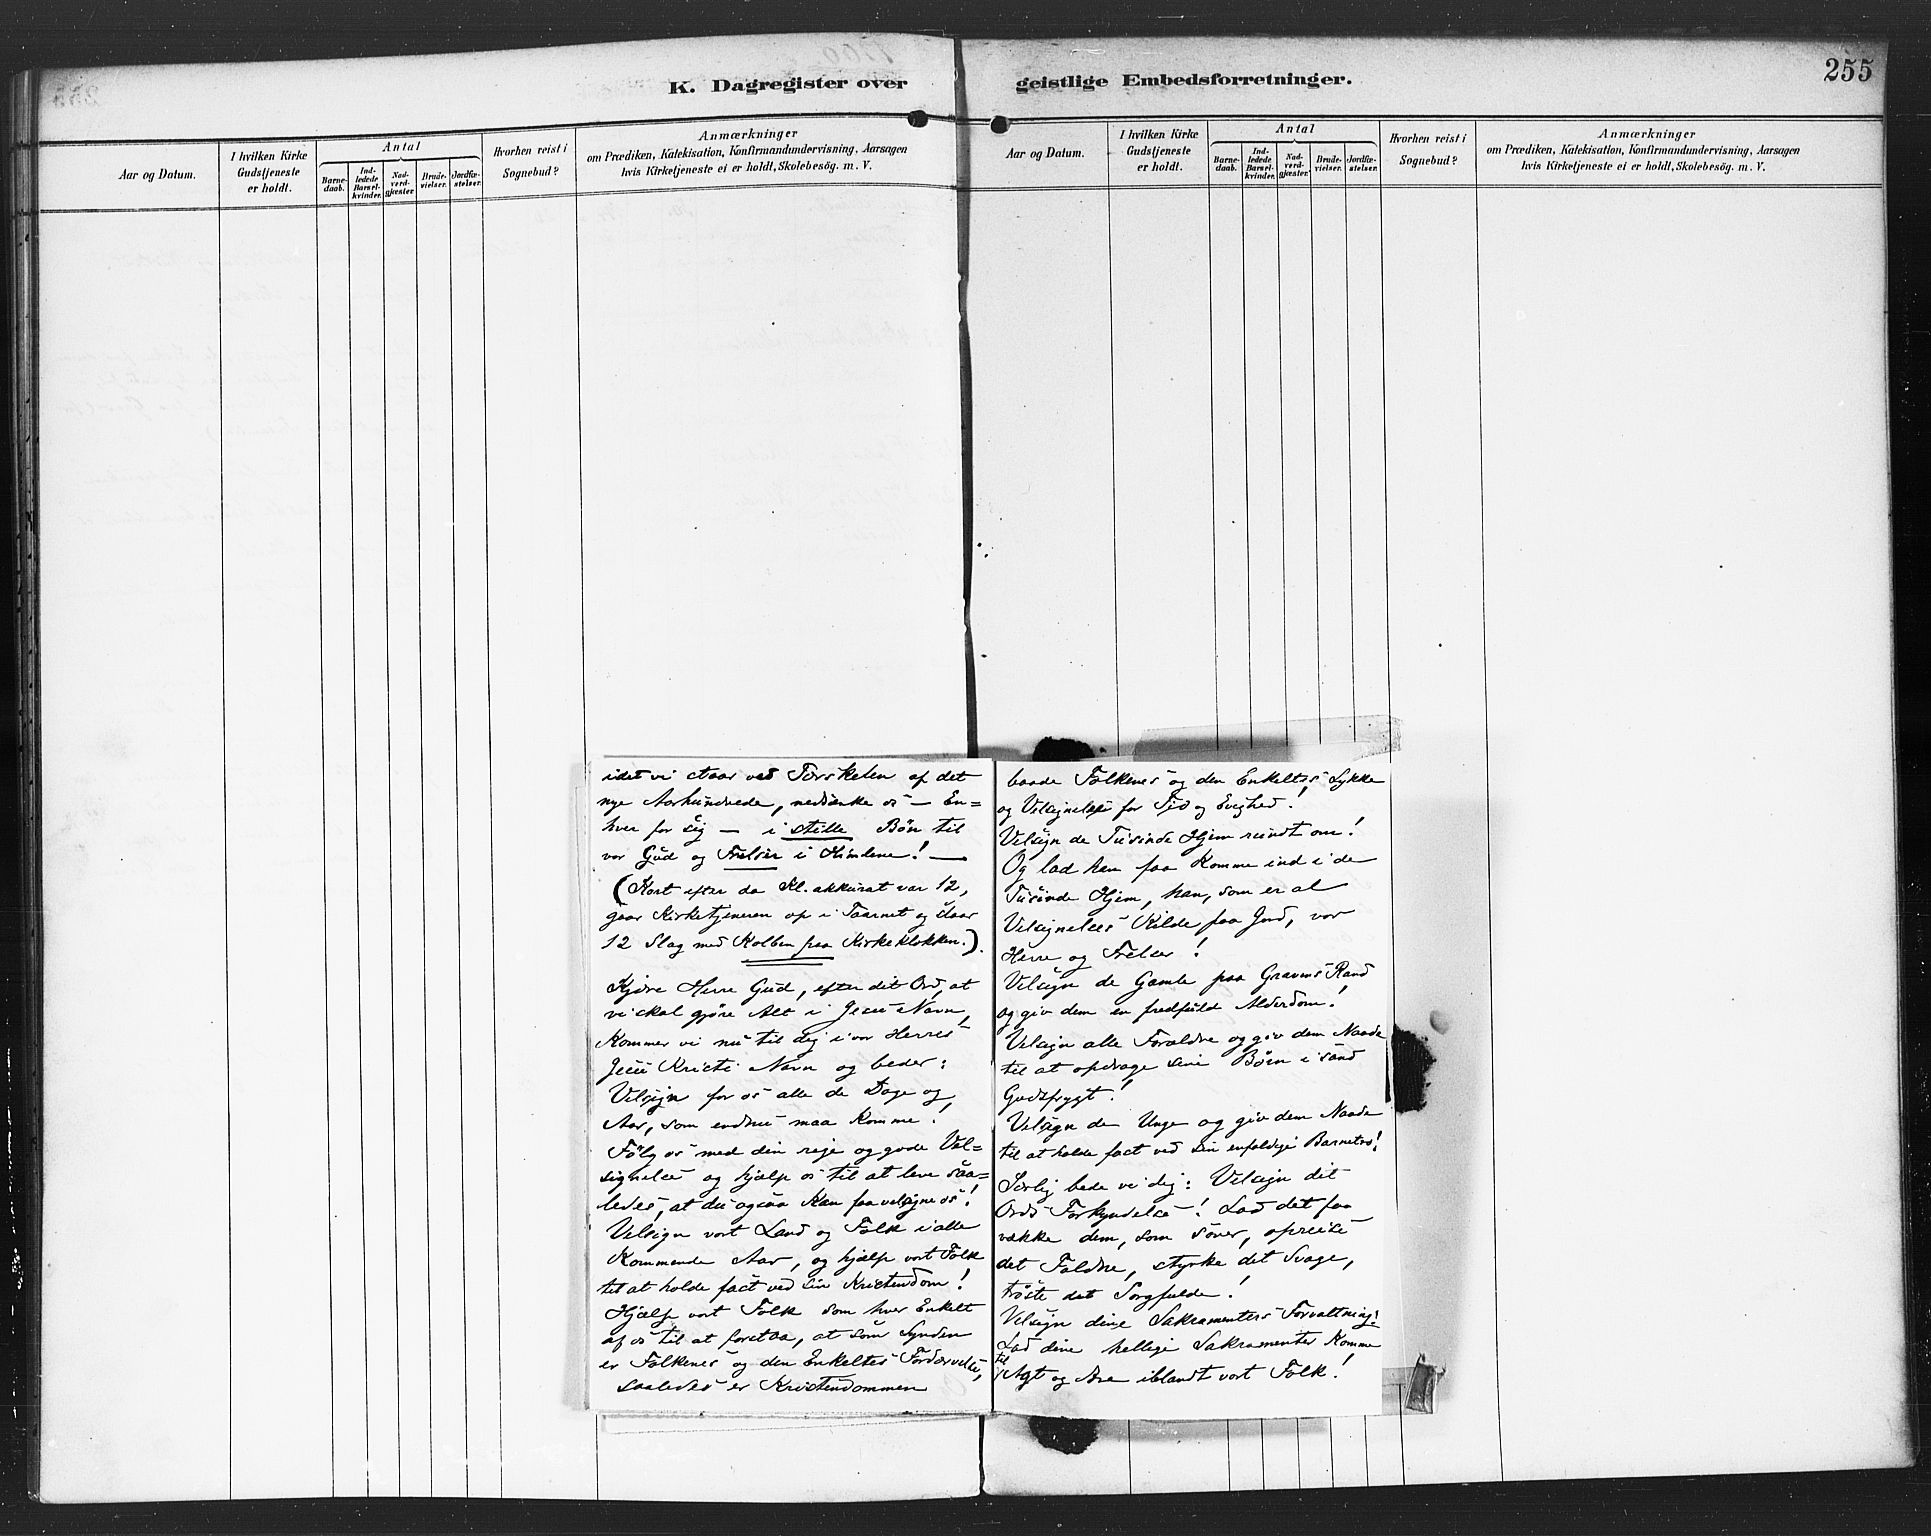 K. Dagregister over
Aar og Datum.
I hvilken Kirke
Gudstjeneste
er holdt.
Antal
Barne-
daab.
Ind-
ledede
Barsel-
kvinder.
Nad-
verd-
gjæster.
Brude-
vielser.
Jordfæ-
stelser.
Hvorhen reist i
Sognebud?
Anmærkninger
om Prædiken, Katekisation, Konfirmandundervisning, Aarsagen
hvis Kirketjeneste ei er holdt, Skolebesög. m. V.
idet vi staar ved Tærskelen af det
nye Aarhundrede, nedsænke os — En=
hver for sig — i stille Bön til
vor Gud og Frelser i Himlene! —
(Kort efter da Kl. akkurat var 12,
gaar Kirketjeneren op i Taarnet og slaar
12 Slag med Kolben paa Kirkeklokken.).
Kjære Herre Gud, efter dit Ord, at
vi skal gjøre Alt i Jesu Navn,
Kommer vi nu til dig i vor Herres
Jesu Kristi Navn og beder:
Velsign for os alle de Dage og
Aar, som endnu maa komme!
Fölg os med din rige og gode Vel=
signelse og hjælp os til at leve saa=
ledes, at du ogsaa kan faa velsigne os!
Velsign vort Land og Folk i alle
Kommende Aar, og hjælp vort Folk
til at holde fast ved sin Kristendom!
Hjælp vort Folk som hver Enkelt
af os til at forstaa, at som Synden
er Folkenes og den Enkeltes Fordærvelse,
saaledes er Kristendommen
geistlige Embedsforretninger.
255
Aar og Datum.
I hvilken Kirke
Gudstjeneste
er holdt.
Antal
Barne-
daab.
Ind-
ledede
Barsel-
kvinder.
Nad-
verd-
gjæster.
Brude-
vielser.
Jordfæ-
stelser.
Hvorhen reist i
Sognebud?
Anmærkninger
om Prædiken, Katekisation, Konfirmandundervisning, Aarsagen
hvis Kirketjeneste ei er holdt, Skolebesög. m. V.
baade Folkenes og den Enkeltes Lykke
og Velsignelse for Tid og Evighed!
Velsign de Tusinde Hjem rundt om!
Og lad ham faa Komme ind i de
Tusinde Hjem, han, som er al
Velsignelses Kilde fra Gud, vor
Herre og Frelser!
Velsign de Gamle paa Gravens Rand
og giv dem en fredfuld Alderdom!
Velsign alle Forældre og giv dem Naade
til at opdrage sine Børn i sand
Gudsfrygt!
Velsign de Unge og giv dem Naade
til at holde fast ved sin enfoldige Barnetro!
Særlig bede vi dig: Velsign dit
Ords Forkyndelse! Lad det faa
vække dem, som sover, opreise
det Faldne, styrke det Svage,
tröste det Sorgfulde!
Velsign dine Sakramenters Forvaltning!
Lad dine hellige Sakramenter Komme
til
Agt og Ære iblandt vort Folk!